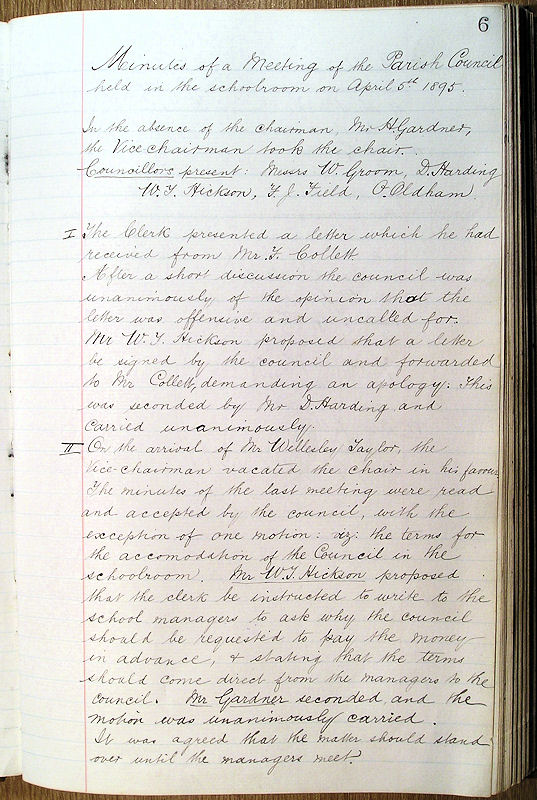 6
Minutes of a Meeting of the Parish Council
held in the schoolroom on April 5th 1895.
In the absence of the chairman, Mr H. Gardner,
the Vice chairman took the chair.
Councillors present: Messrs W. Groom, D. Harding
W. T. Hickson, F. J. Field, O. Oldham.
I The Clerk presented a letter which he had
received from Mr. F. Collett
After a short discussion the council was
unanimously of the opinion that the
letter was offensive and uncalled for.
Mr W. T. Hickson proposed that a letter
be signed by the council and forwarded
to Mr Collett, demanding an apology. This
was seconded by Mr D. Harding and
carried unanimously.
II On the arrival of Mr Wellesley Taylor, the
Vice-chairman vacated the chair in his favour.
The minutes of the last meeting were read
and accepted by the council, with the
exception of one motion: viz: the terms for
the accomodation of the Council in the
schoolroom. Mr W. T. Hickson proposed
that the clerk be instructed to write to the
school managers to ask why the council
should be requested to pay the money
in advance, & stating that the terms
should come direct from the managers to the
council. Mr Gardner seconded, and the
motion was unanimously carried.
It was agreed that the matter should stand
over until the managers meet.